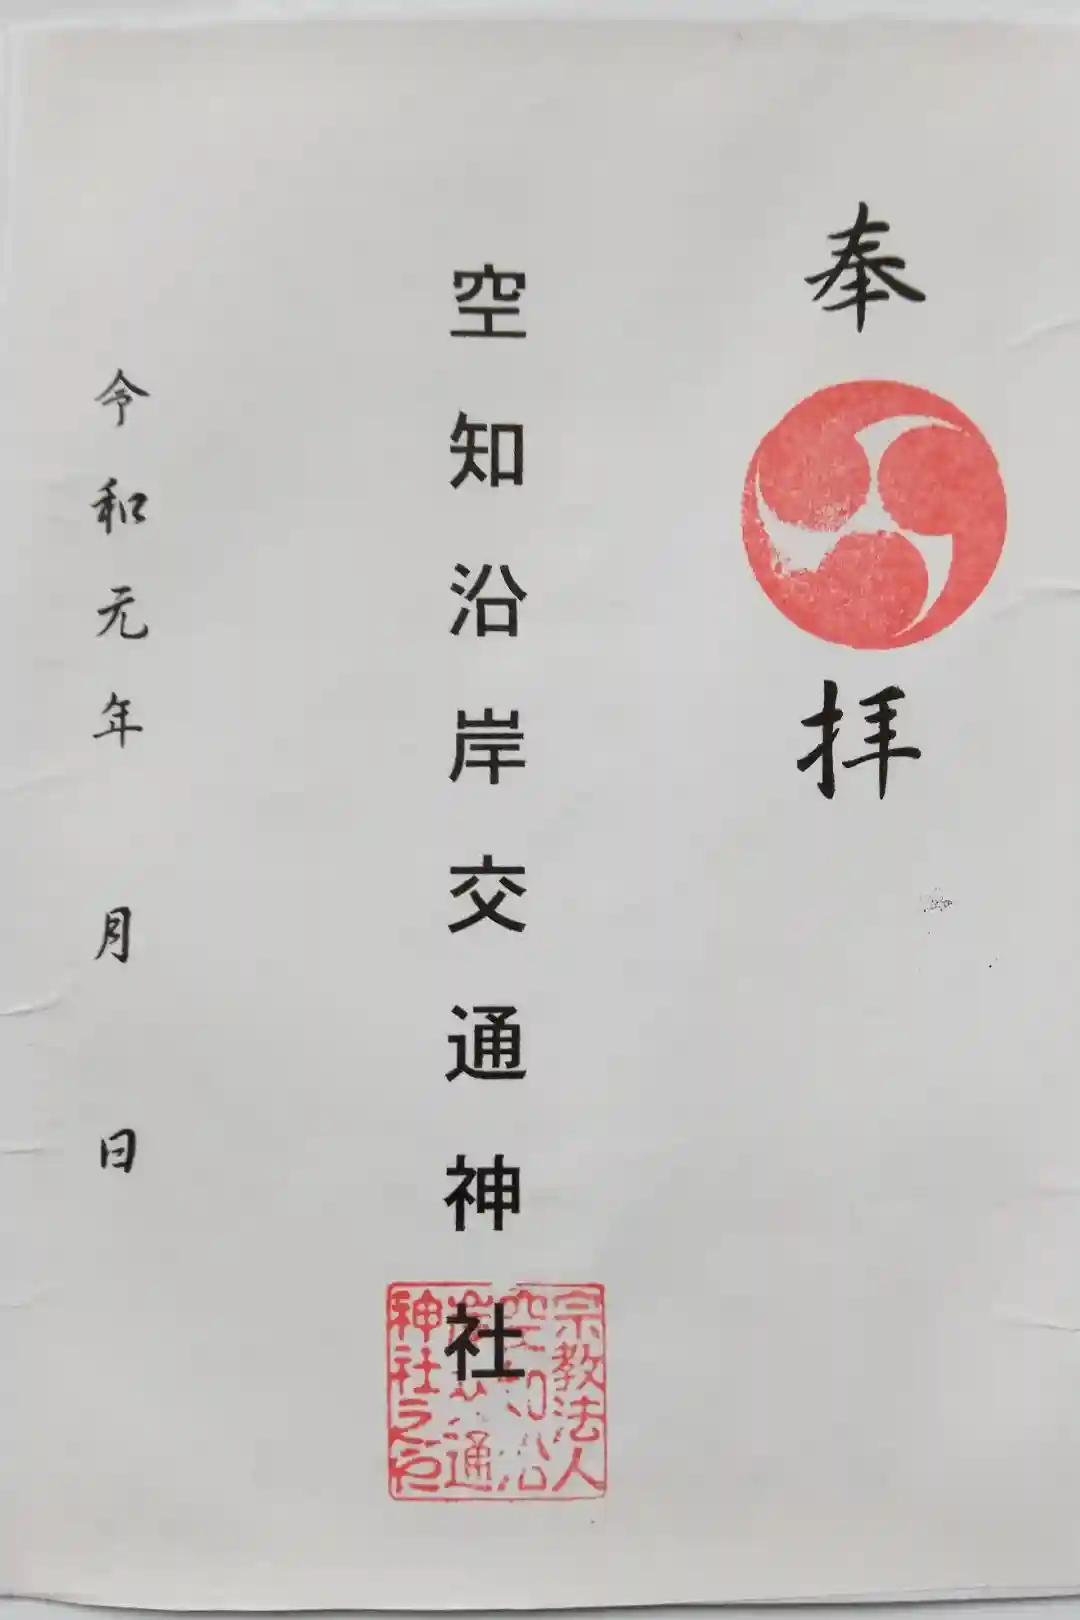 奉拝
空知沿岸交通神社
令和元年 月 日
宗教法人
空知沿
岸交通
神社之印